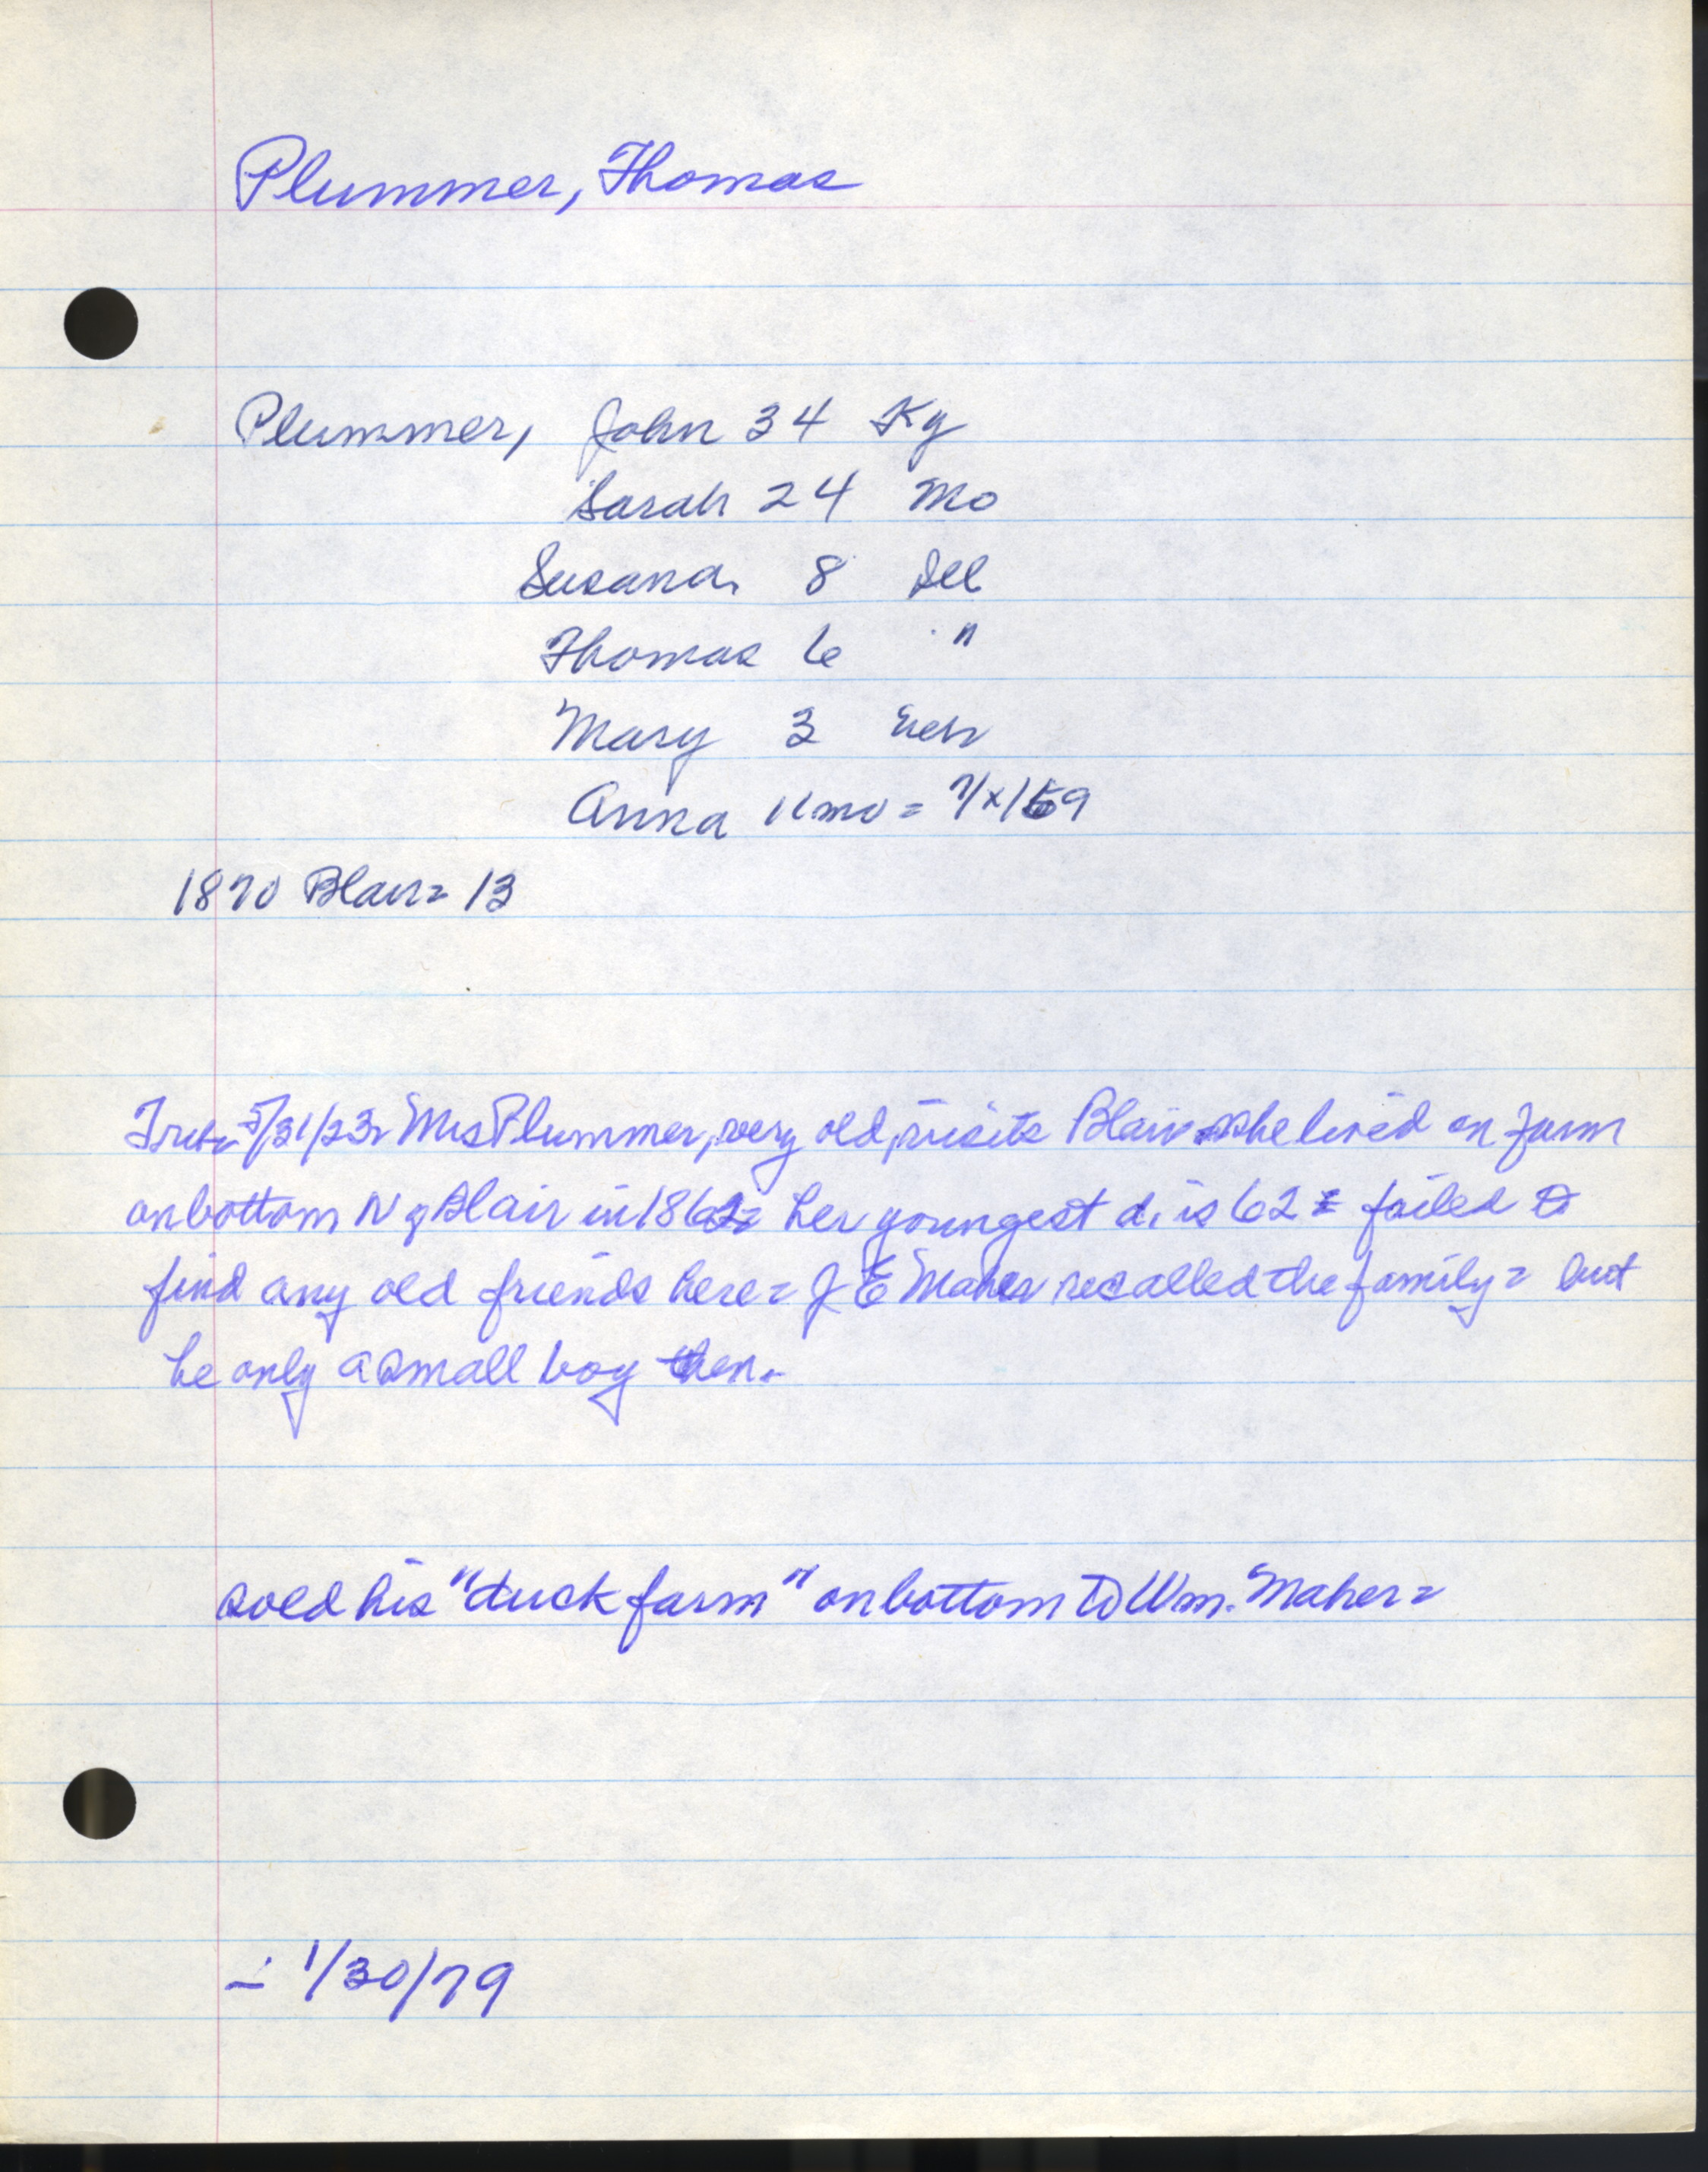 Plummer, Thomas
Plummer, John 34 Ky
Sarah 24 Mo
Susana 8 Ill
Thomas 6 "
Mary 3 Neb
Anna 11 mo = 7/x/69
1870 Blair = 13
Trib 5/31/23 = Mrs Plummer, very old, visits Blair she lived on farm
on bottom N of Blair in 1862 = her youngest d. is 62 = failed to
find any old friends here = J E Maher recalled the family = but
he only a small boy then.
sold his "duck farm" on bottom to Wm. Maher =
- 1/30/79